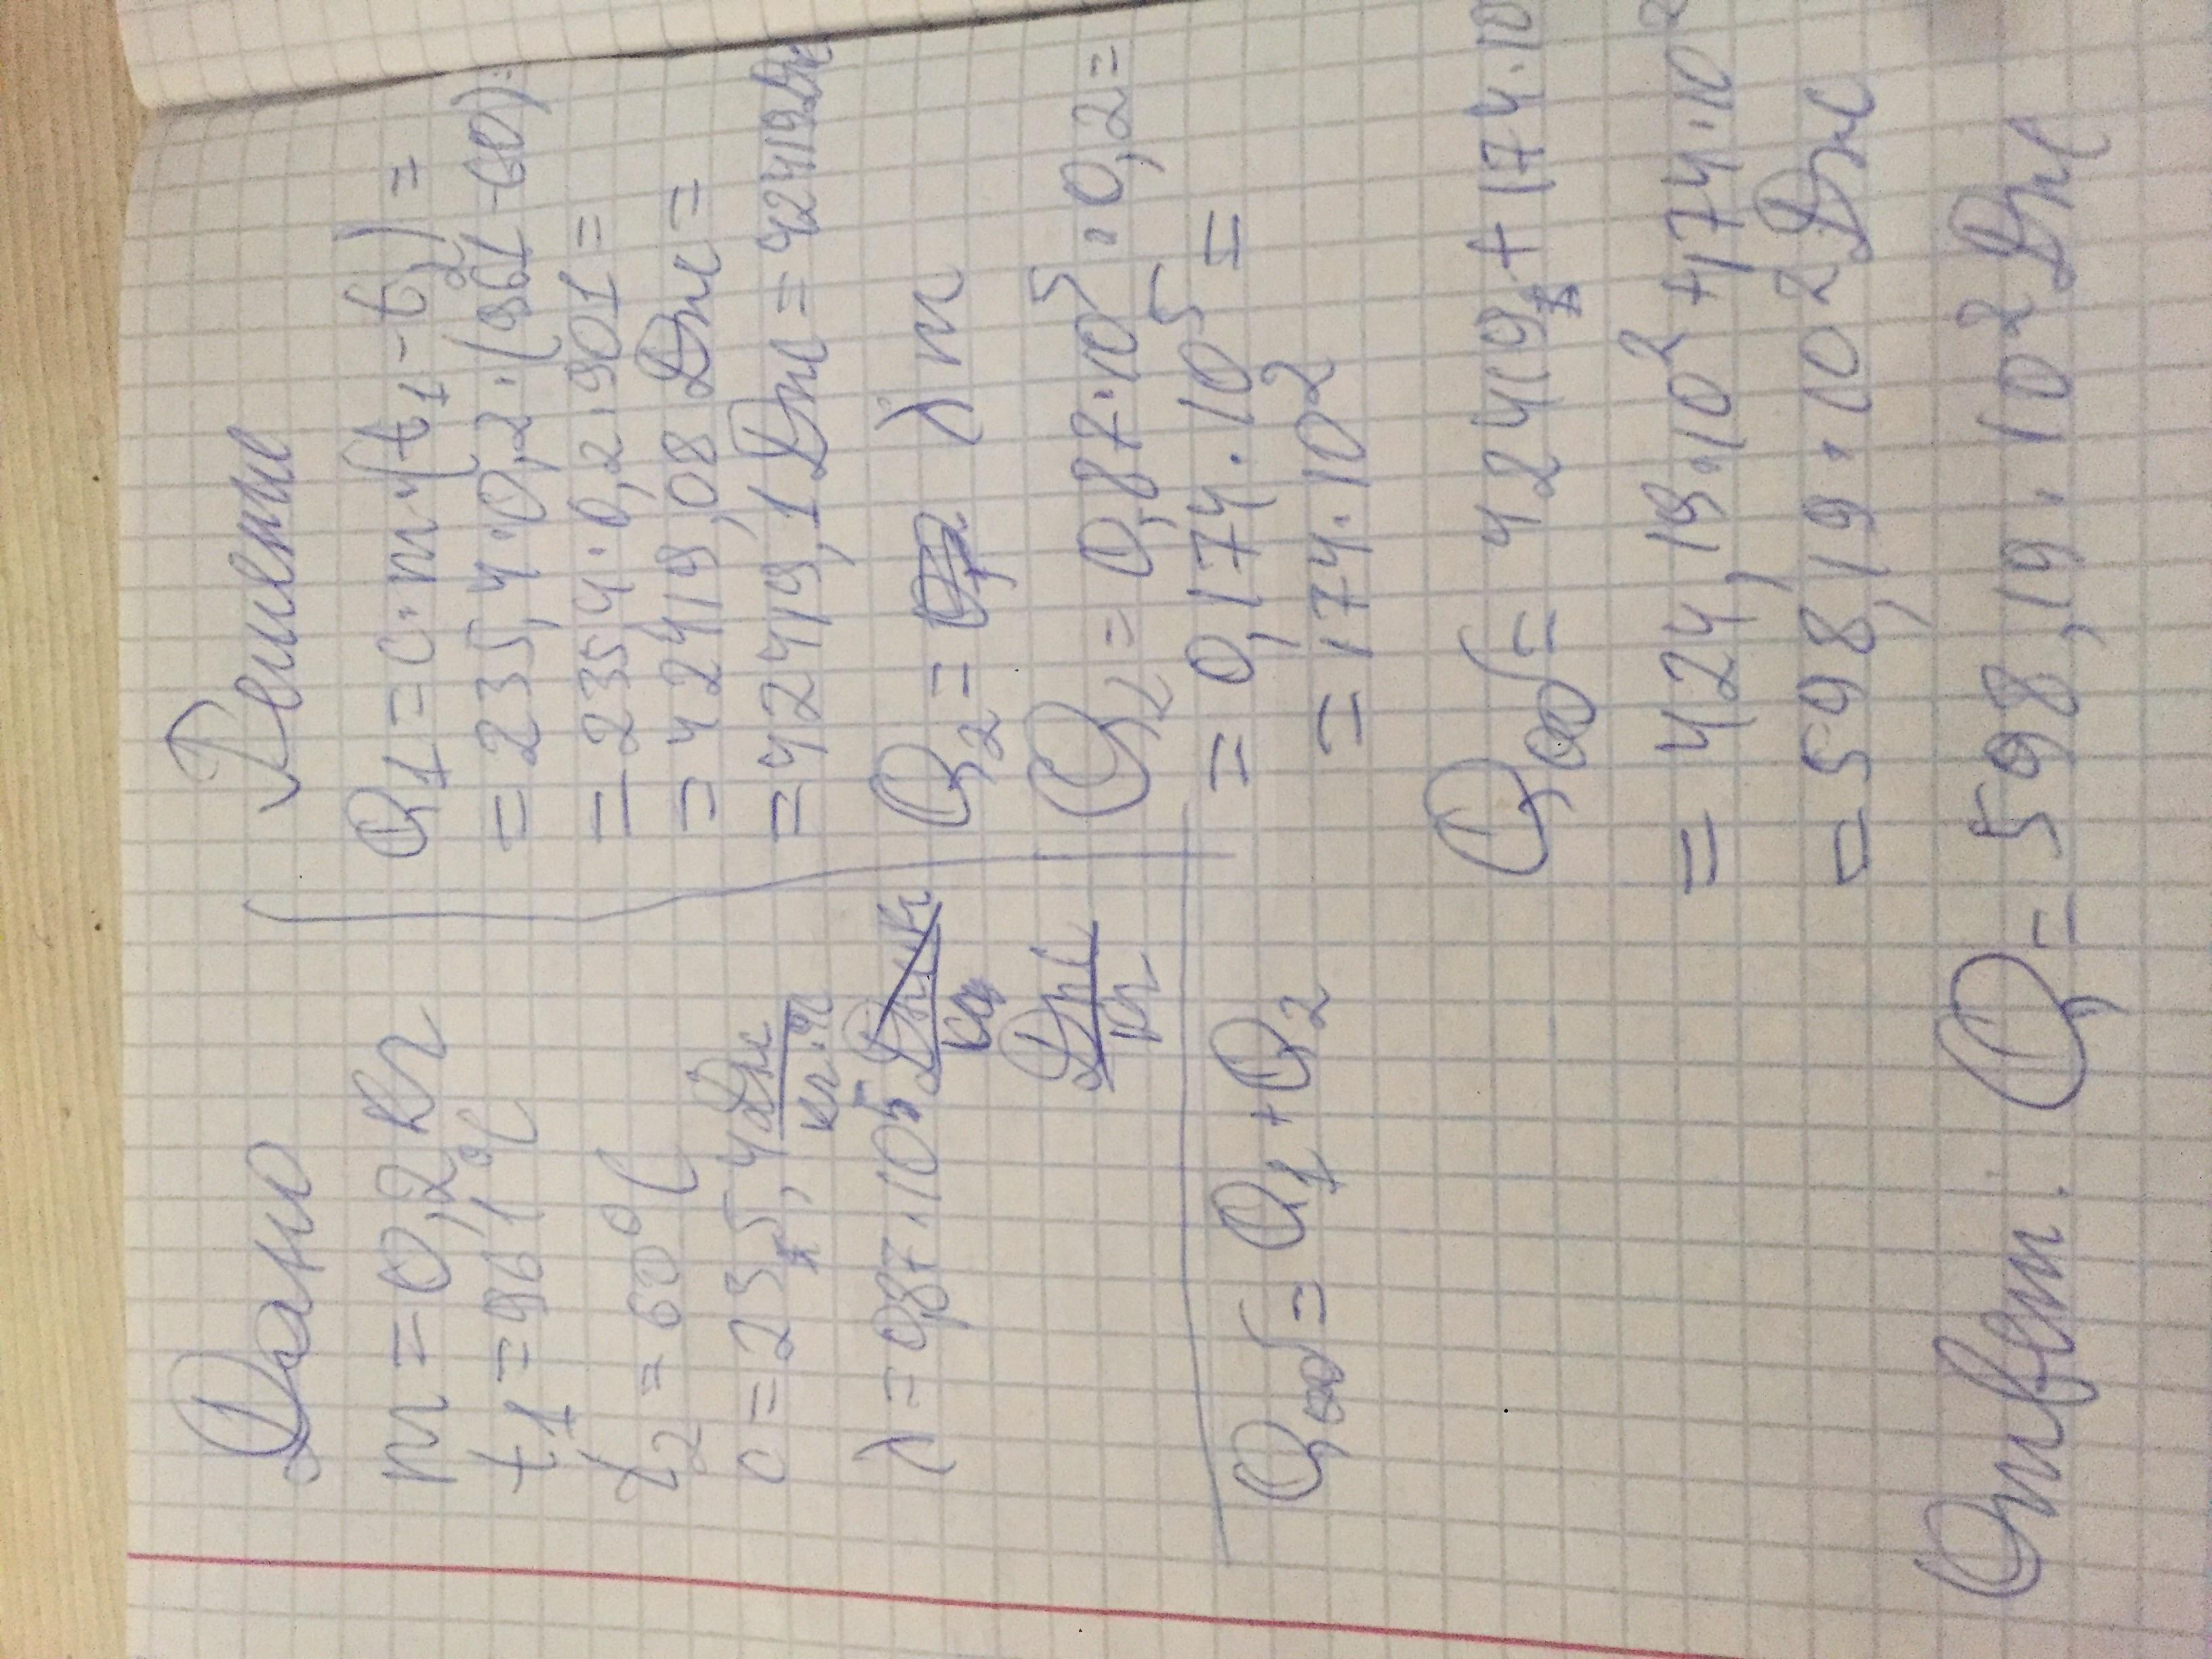 Дано
m = 0,2 кг
t1 = 961 °C
t2 = 60°C
c = 235,4 Дж/кг·°C
λ = 0,87·10^5 Дж/кг
Qоб = Q1 + Q2
Решение
Q1 = c·m·(t1-t2) =
= 235,4·0,2·(961-60) =
= 235,4·0,2·901 =
= 42419,08 Дж =
= 42419,1 Дж = 42419 Дж
Q2 = λm
Q2 = 0,87·10^5·0,2 =
= 0,174·10^5 =
= 174·10^2
Qоб = 42419 + 174·10
= 424,19·10^2 + 174·10^2
= 598,19·10^2 Дж
Ответ: Q = 598,19·10^2 Дж